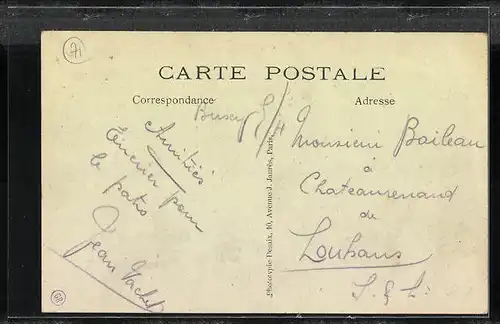 71
CARTE POSTALE
Correspondance
Adresse
Amitiés
pour
le
Jean Vachet
Phototypie Desaix, 10, Avenue J. Jaurès, Paris.
Monsieur Baileau
à
Chateaurenaud
de
Louhans
S. & L.